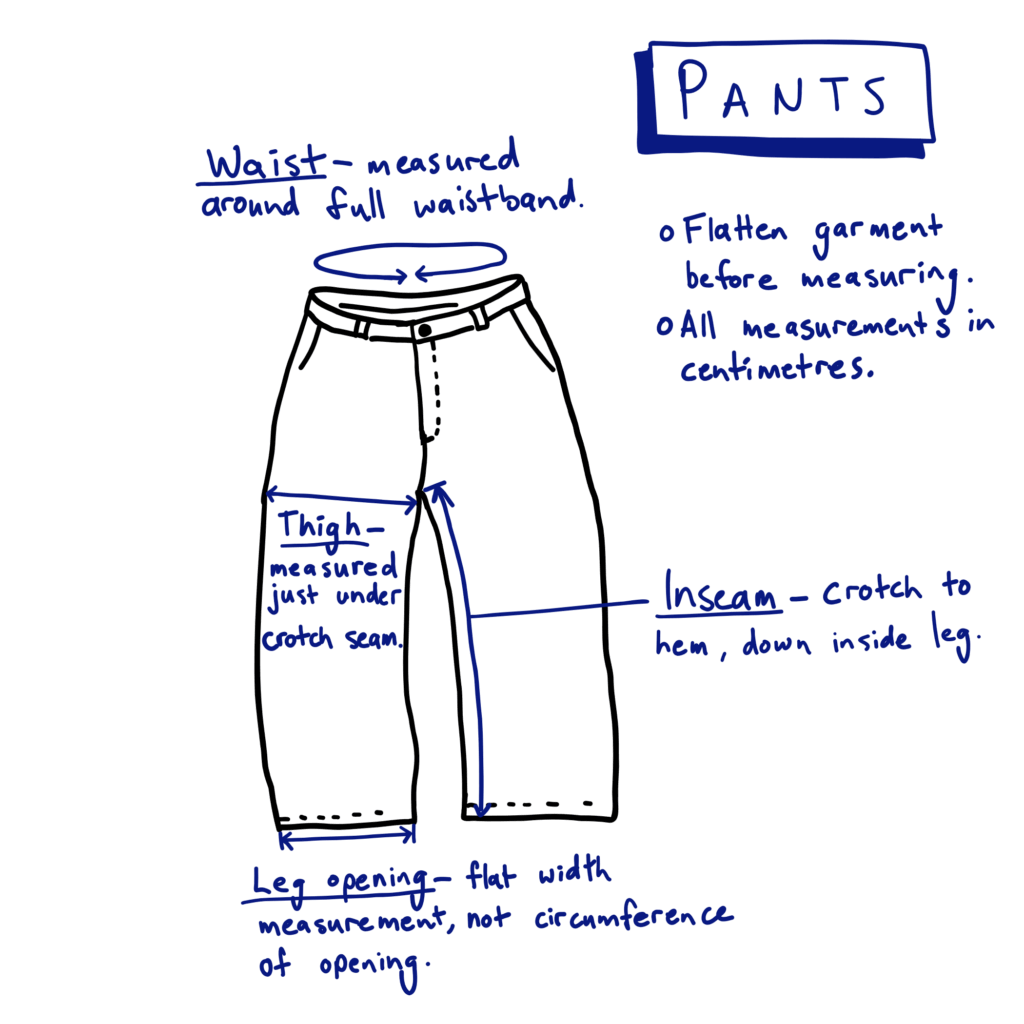 PANTS
Waist - measured
around full waistband.
o Flatten garment
before measuring.
o All measurements in
centimetres.
Thigh -
measured
just under
crotch seam.
Inseam - crotch to
hem, down inside leg.
Leg opening - flat width
measurement, not circumference
of opening.